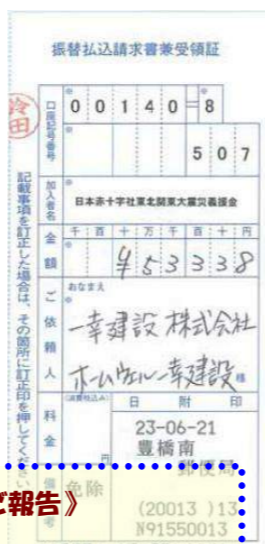 振替払込請求書兼受領証
口座記号番号
00140=8
507
加入者名
日本赤十字社東北関東大震災義援金
金額
千百十万千百十円
¥53338
ご依頼人
おなまえ
一幸建設株式会社
ホームウェル一幸建設様
料金
(消費税込み)
円
日附印
23-06-21
豊橋南
郵便局
備考
免除
(20013 )13
N91550013
記載事項を訂正した場合は、その箇所に訂正印を押してください
ご報告》